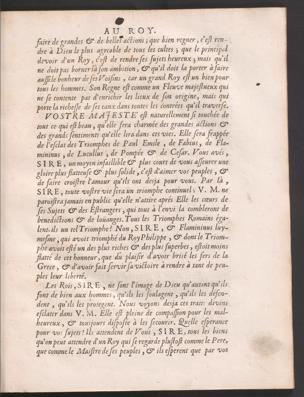 AU ROY.
faire de grandes & de belles actions; que bien regner, c'est ren-
dre à Dieu le plus agreable de tous les cultes; que le principal
devoir d'un Roy, c'est de rendre ses sujets heureux; mais qu'il
ne doit pas borner là son ambition, & qu'il doit la porter à faire
aussi le bonheur de ses Voisins, car un grand Roy est un bien pour
tous les hommes. Son Regne est comme un Fleuve majestueux qui
ne se contente pas d'enrichir les lieux de son origine, mais qui
porte la richesse de ses eaux dans toutes les contrées qu'il traverse.
VOSTRE MAJESTÉ est naturellement si touchée de
tout ce qui est beau, qu'elle sera charmée des grandes actions &
des grands sentiments qu'elle lira dans ces vies. Elle sera frappée
de l'éclat des Triomphes de Paul Emile, de Fabius, de Fla-
mininus, de Lucullus, de Pompée & de Cesar. Vous avés,
SIRE, un moyen infaillible & plus court de vous asseurer une
gloire plus flatteuse & plus solide, c'est d'aimer vos peuples, &
de faire croistre l'amour qu'ils ont deja pour vous. Par là,
SIRE, toute vostre vie sera un triomphe continuel; V. M. ne
paroistra jamais en public qu'elle n'attire aprés Elle les cœurs de
ses Sujets & des Estrangers, qui tous à l'envi la combleront de
benedictions & de loüanges. Tous les Triomphes Romains éga-
lent-ils un tel Triomphe! Non, SIRE, & Flamininus luy-
mesme, qui avoit triomphé du Roy Philippe, & dont le Triom-
phe avoit esté un des plus riches & des plus superbes, estoit moins
flatté de cet honneur, que du plaisir d'avoir brisé les fers de la
Grece, & d'avoir fait servir sa victoire à rendre à tant de peu-
ples leur liberté.
Les Rois, SIRE, ne sont l'image de Dieu qu'autant qu'ils
sont de bien aux hommes, qu'ils les soulagent, qu'ils les défen-
dent, qu'ils les protegent. Nous voyons deja ces traits divins
esclater dans V. M. Elle est pleine de compassion pour les mal-
heureux, & toujours disposée à les secourir. Quelle esperance
pour vos sujets! Ils attendent de Vous, SIRE, tous les biens
qu'on peut attendre d'un Roy qui se regarde plustost comme le Pere,
que comme le Maistre de ses peuples, & ils esperent que par vos